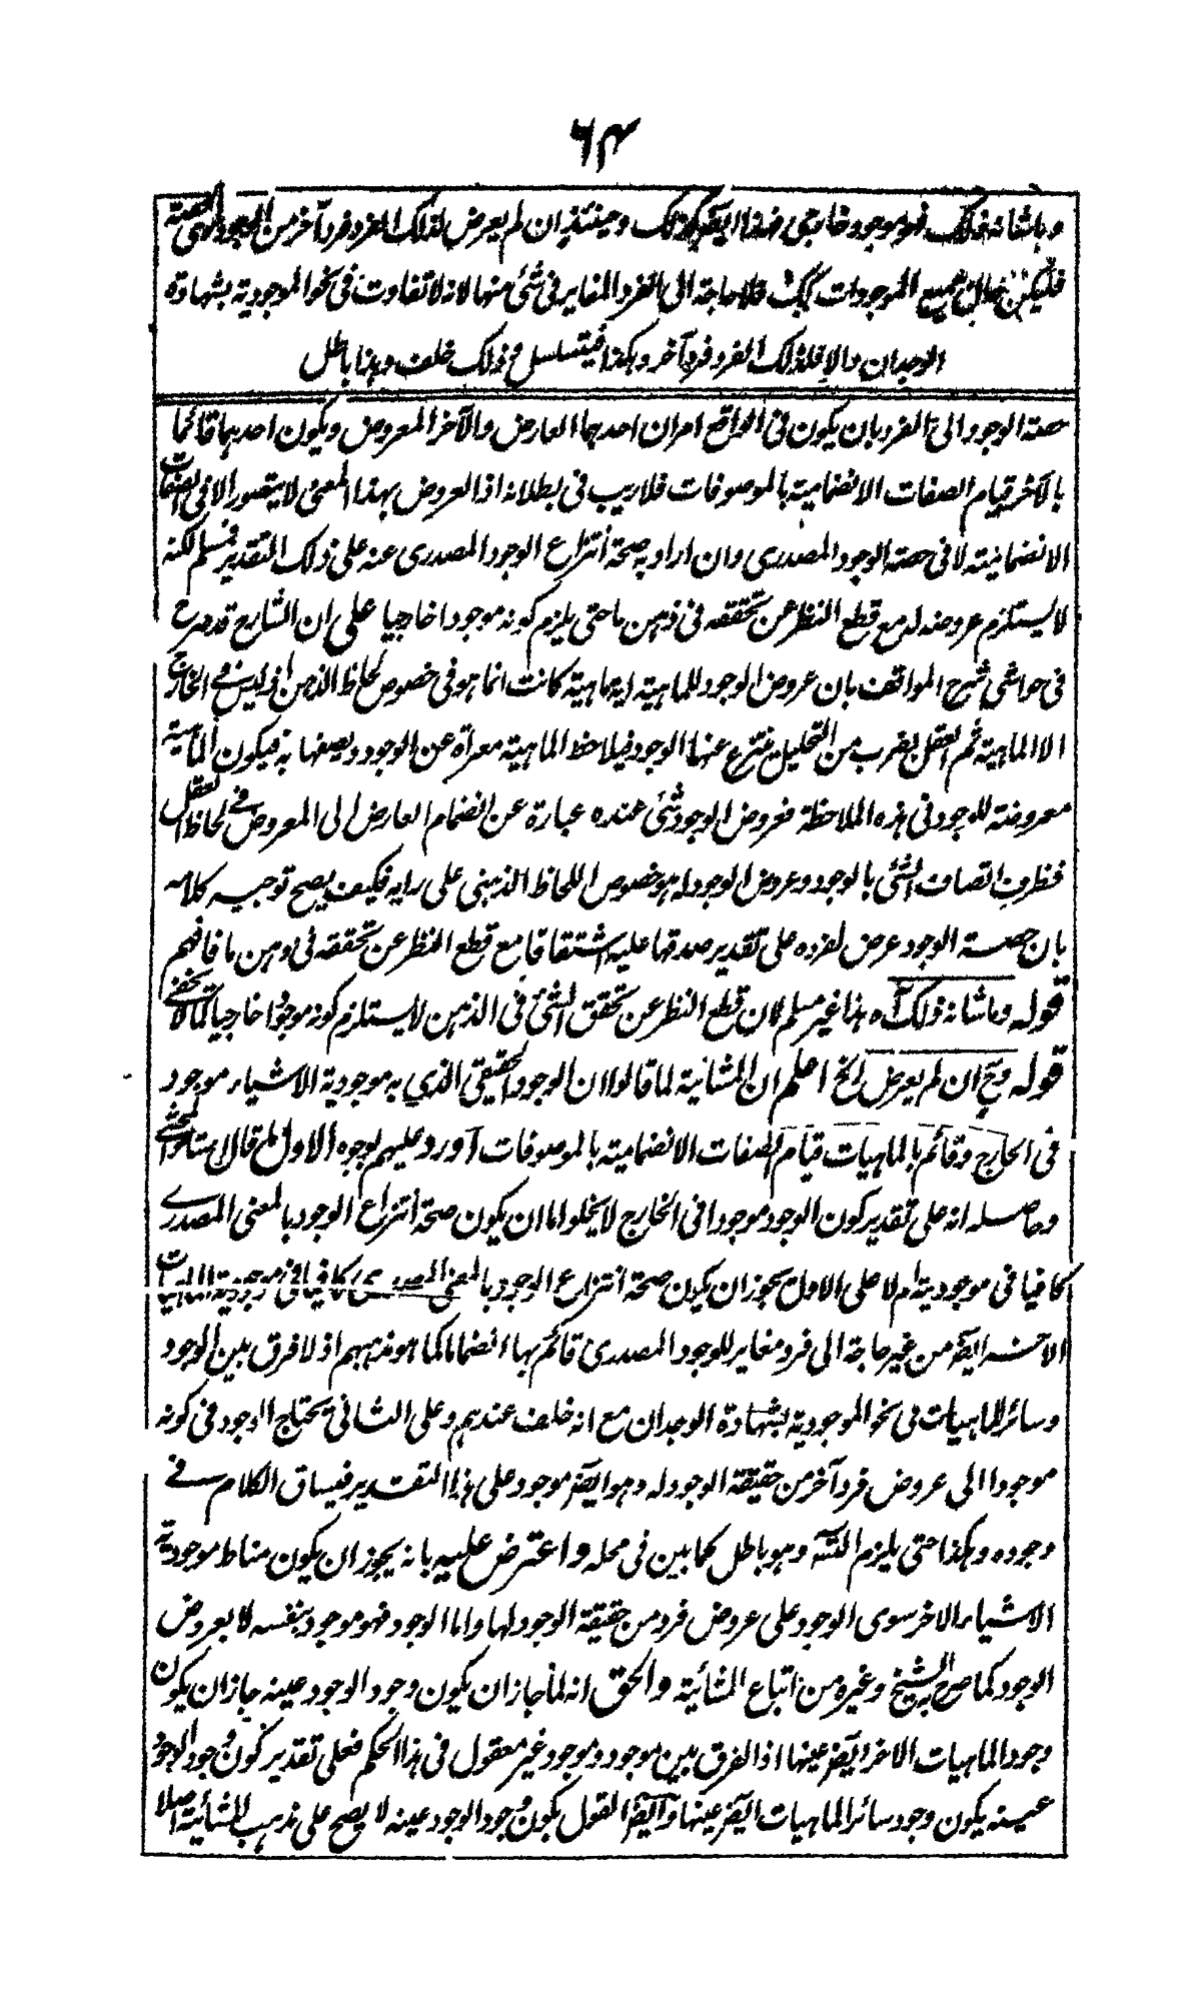 ٦٤
وما شانه ذلك فهو موجود خارجي فهذا ايضا كذلك وحينئذ ان لم يعرض لذلك الفرد فرد آخر من الوجود الحصة
فليكن جميع الموجودات كذلك فلا حاجة الى الفرد المغاير في شئ منها لانه لا تفاوت في نحو الموجودية بشهادة
الوجدان والا فلذلك الفرد فرد آخر وهكذا فيتسلسل مع ذلك خلف وهذا باطل
حصة الوجود الى الفرد بان يكون في الواقع امران احدهما العارض والآخر المعروض ويكون احدهما قائما
بالآخر قيام الصفات الانضمامية بالموصوفات فلا ريب في بطلانه اذ العروض بهذا المعنى لا يتصور الا في الصفات
الانضمامية لا في حصة الوجود المصدري وان اراد به صحة انتزاع الوجود المصدري عنه على ذلك التقدير فمسلم لكنه
لا يستلزم عروضه له مع قطع النظر عن تحققه في ذهن ما حتى يلزم كونه موجودا خارجيا على ان الشارح قد صرح
في حواشي شرح المواقف بان عروض الوجود للماهية اية ماهية كانت انما هو في خصوص لحاظ الذهن اذ ليس في الخارج
الا الماهية ثم العقل بضرب من التحليل ينتزع عنها الوجود فيلاحظ الماهية معراة عن الوجود ويصفها به فيكون الماهية
معروضة للوجود في هذه الملاحظة فعروض الوجود لشئ عنده عبارة عن انضمام العارض الى المعروض في لحاظ العقل
فظرف اتصاف الشئ بالوجود وعروض الوجود له هو خصوص اللحاظ الذهني على رايه فكيف يصح توجيه كلامه
بان حصة الوجود عرض لفرده على تقدير صدقها عليه اشتقاقا مع قطع النظر عن تحققه في ذهن ما فافهم
قوله وما شانه ذلك آه هذا غير مسلم لان قطع النظر عن تحقق الشئ في الذهن لا يستلزم كونه موجودا خارجيا كما لا يخفى
قوله وح ان لم يعرض الخ اعلم ان المشائية لما قالوا ان الوجود الحقيقي الذي به موجودية الاشياء موجود
في الخارج وقائم بالماهيات قيام الصفات الانضمامية بالموصوفات اورد عليهم بوجوه الاول ما قال استاذ المحشي
وحاصله انه على تقدير كون الوجود موجودا في الخارج لا يخلو اما ان يكون صحة انتزاع الوجود بالمعنى المصدرى
كافيا في موجودية ام لا على الاول يجوز ان يكون صحة انتزاع الوجود بالمعنى المصدري كافيا في موجودية الماهيات
الآخر ايضا من غير حاجة الى فرد مغاير للوجود المصدري قائم بها انضماما كما هو مذهبهم اذ لا فرق بين الوجود
وسائر الماهيات في نحو الموجودية بشهادة الوجدان مع انه خلف عندهم وعلى الثاني يحتاج الوجود في كونه
موجودا الى عروض فرد آخر من حقيقة الوجود له وهو ايضا موجود على هذا التقدير فيساق الكلام في
وجوده وهكذا حتى يلزم التس وهو باطل كما بين في محله واعترض عليه بانه يجوز ان يكون مناط موجودية
الاشياء الاخر سوى الوجود على عروض فرد من حقيقة الوجود لها واما الوجود فهو موجود بنفسه لا بعروض
الوجود كما صرح به الشيخ وغيره من اتباع المشائية والحق انه لما جاز ان يكون وجود الوجود عينه جاز ان يكون
وجود الماهيات الاخر ايضا عينها اذ الفرق بين موجود وموجود غير معقول في هذا الحكم فعلى تقدير كون وجود الوجود
عينه يكون وجود سائر الماهيات ايضا عينها وايضا القول بكون وجود الوجود عينه لا يصح على مذهب المشائية اصلا